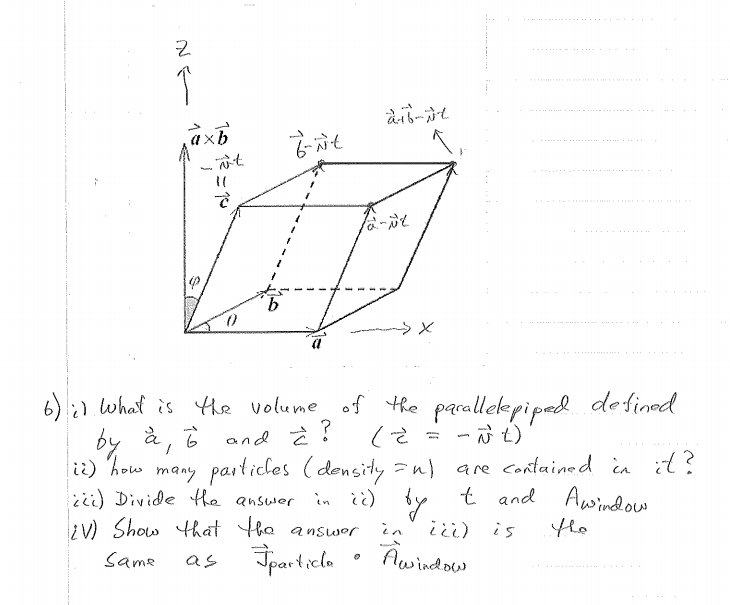 Z
a⃗×b⃗
b⃗-v⃗t
a⃗+b⃗-v⃗t
-v⃗t
=
c⃗
a⃗-v⃗t
φ
θ
b⃗
a⃗
X
6) i) What is the volume of the parallelepiped defined
by a⃗, b⃗ and c⃗? (c⃗ = -v⃗t)
ii) how many particles (density = n) are contained in it?
iii) Divide the answer in ii) by t and Awindow
iV) Show that the answer in iii) is the
same as J⃗particle • A⃗window